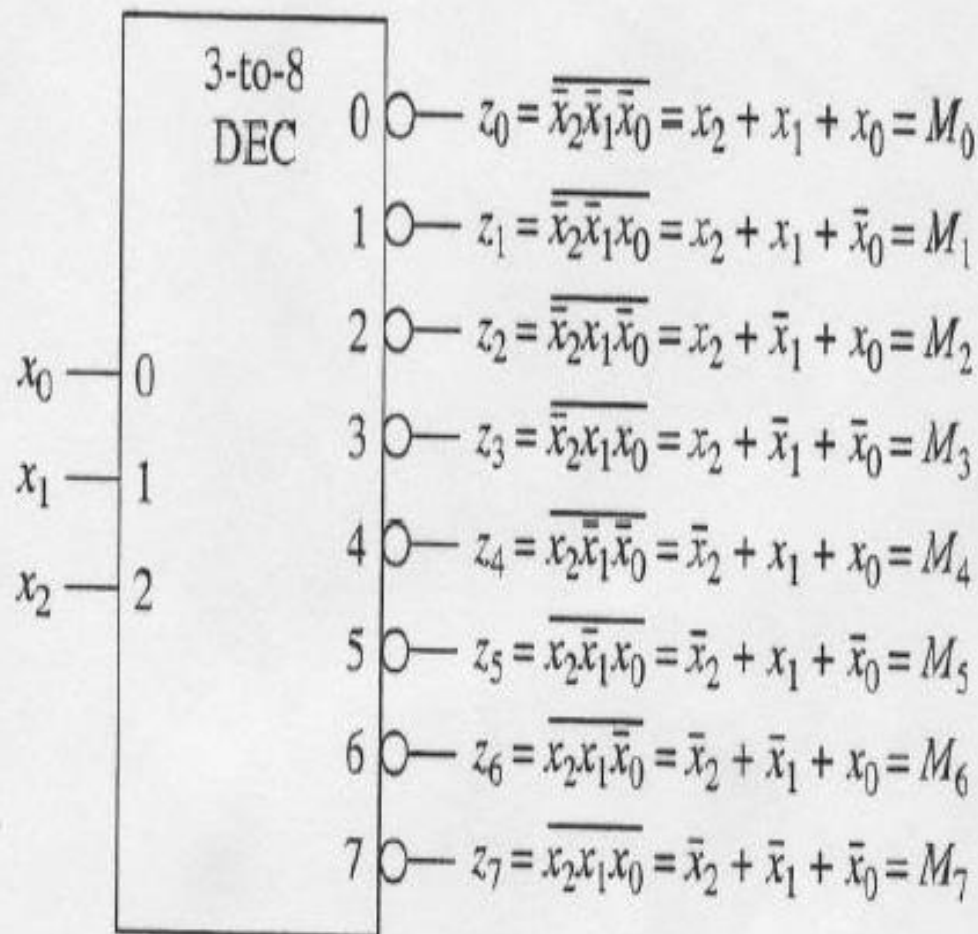 3-to-8
DEC
0 z₀ = \overline{x̄₂x̄₁x̄₀} = x₂ + x₁ + x₀ = M₀
1 z₁ = \overline{x̄₂x̄₁x₀} = x₂ + x₁ + x̄₀ = M₁
2 z₂ = \overline{x̄₂x₁x̄₀} = x₂ + x̄₁ + x₀ = M₂
x₀ 0
3 z₃ = \overline{x̄₂x₁x₀} = x₂ + x̄₁ + x̄₀ = M₃
x₁ 1
4 z₄ = \overline{x₂x̄₁x̄₀} = x̄₂ + x₁ + x₀ = M₄
x₂ 2
5 z₅ = \overline{x₂x̄₁x₀} = x̄₂ + x₁ + x̄₀ = M₅
6 z₆ = \overline{x₂x₁x̄₀} = x̄₂ + x̄₁ + x₀ = M₆
7 z₇ = \overline{x₂x₁x₀} = x̄₂ + x̄₁ + x̄₀ = M₇